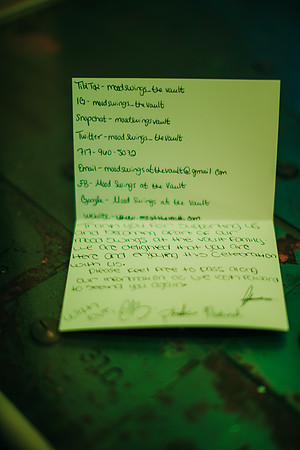 TikTok - moodswings_the vault
IG - moodswings_thevault
Snapchat - moodswingsvault
Twitter - moodswings_thevault
Email - moodswingsatthevault@gmail.com
FB - Mood Swings at the Vault
Google - Mood Swings at the Vault
Website - www.
Thank you for supporting us
and becoming apart of our
Mood Swings at the Vault Family.
We are delighted that you are
Here and enjoying this Celebration
with us.
Please feel free to pass along
our information as we look forward
to seeing you again.